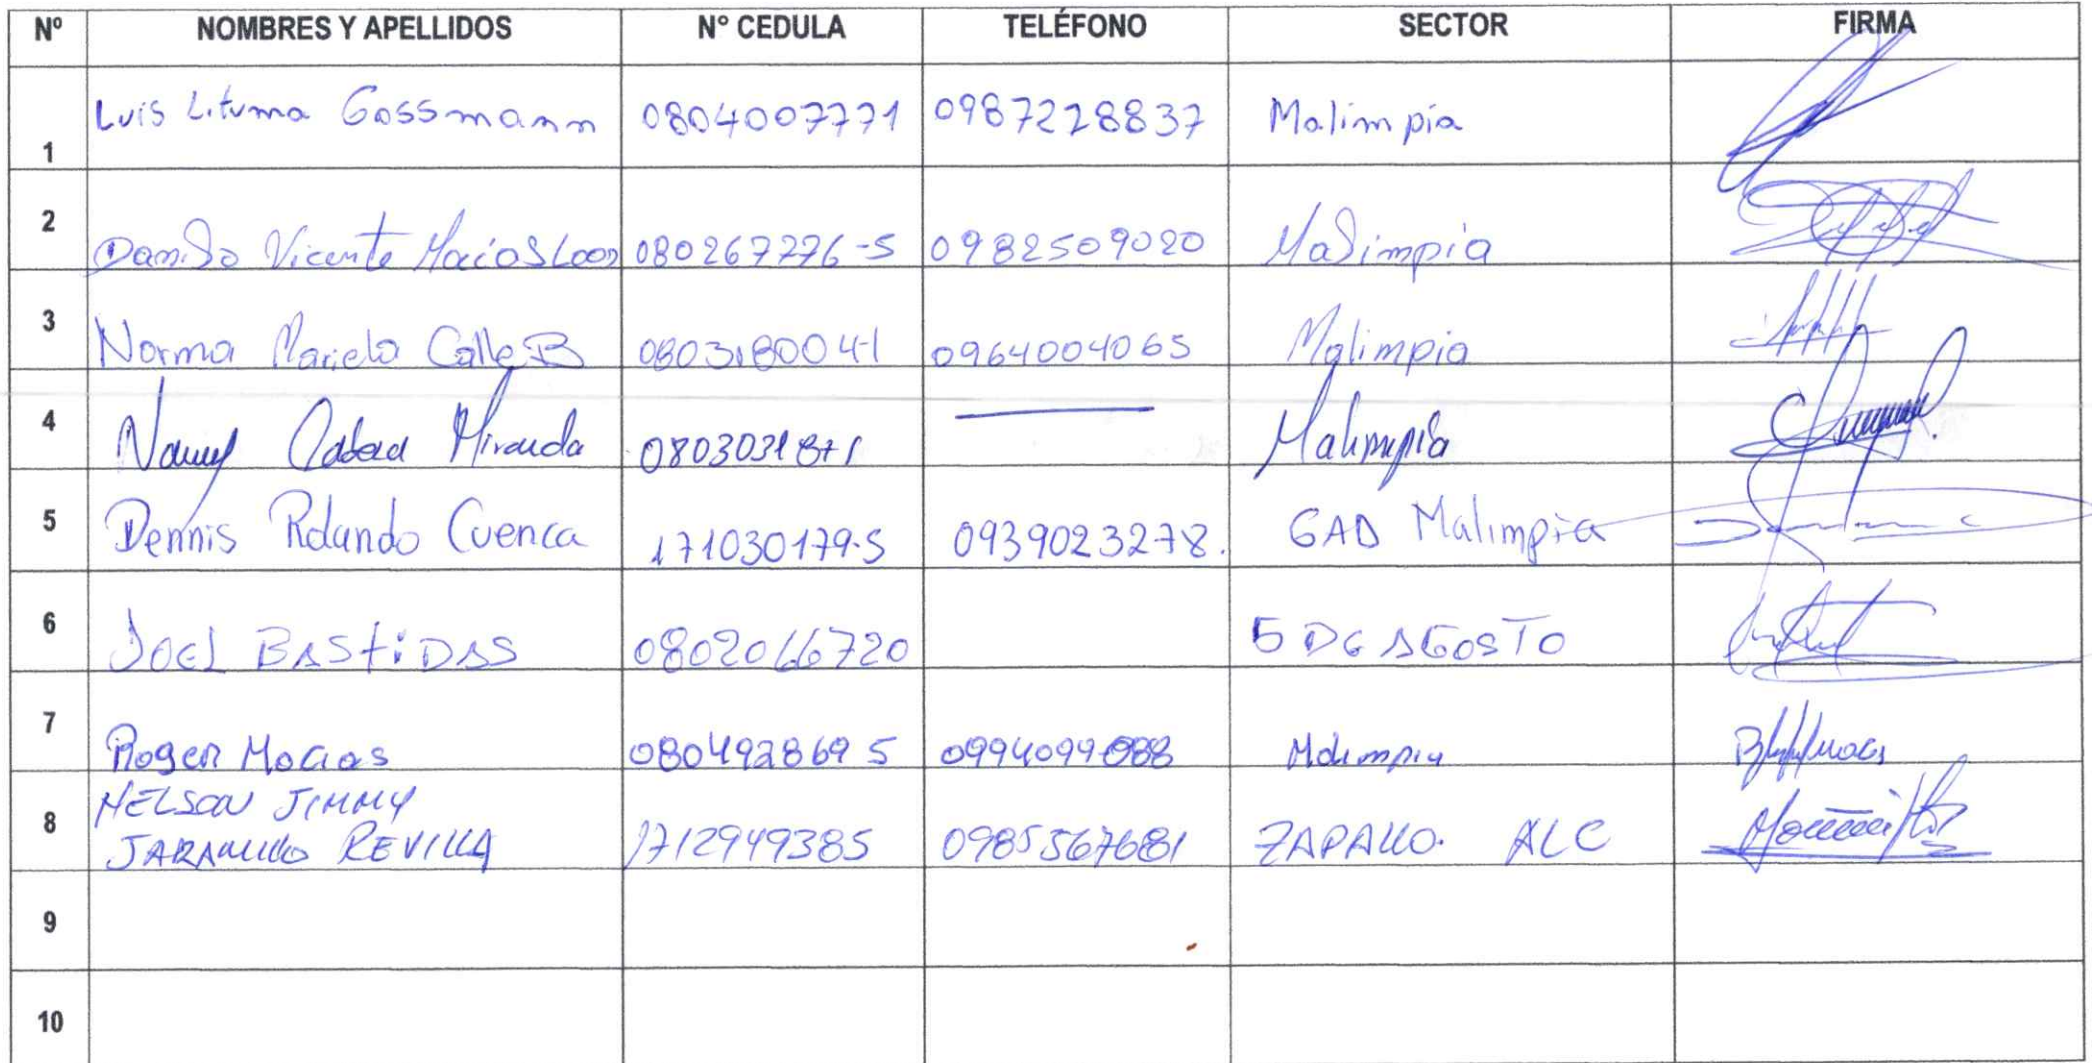 Nº NOMBRES Y APELLIDOS Nº CEDULA TELÉFONO SECTOR FIRMA
1 Luis Lituma Gossmann 0804007771 0987228837 Malimpia
2 Danilo Vicente Macías Loor 080267276-5 0982509020 Malimpia
3 Norma Mariela Calle B 080318004-1 0964004065 Malimpia
4 Miranda Malimpia
5 Dennis Rolando Cuenca 171030179-5 0939023278. GAD Malimpia
6 JOEL BASTIDAS 0802066720 5 DE AGOSTO
7 Roger Macias 080492869 5 Malimpia
8 NELSON JIMMY
JARAMILLO REVILLA 1712949385 0985567681 ZAPALLO. ALC
9
10